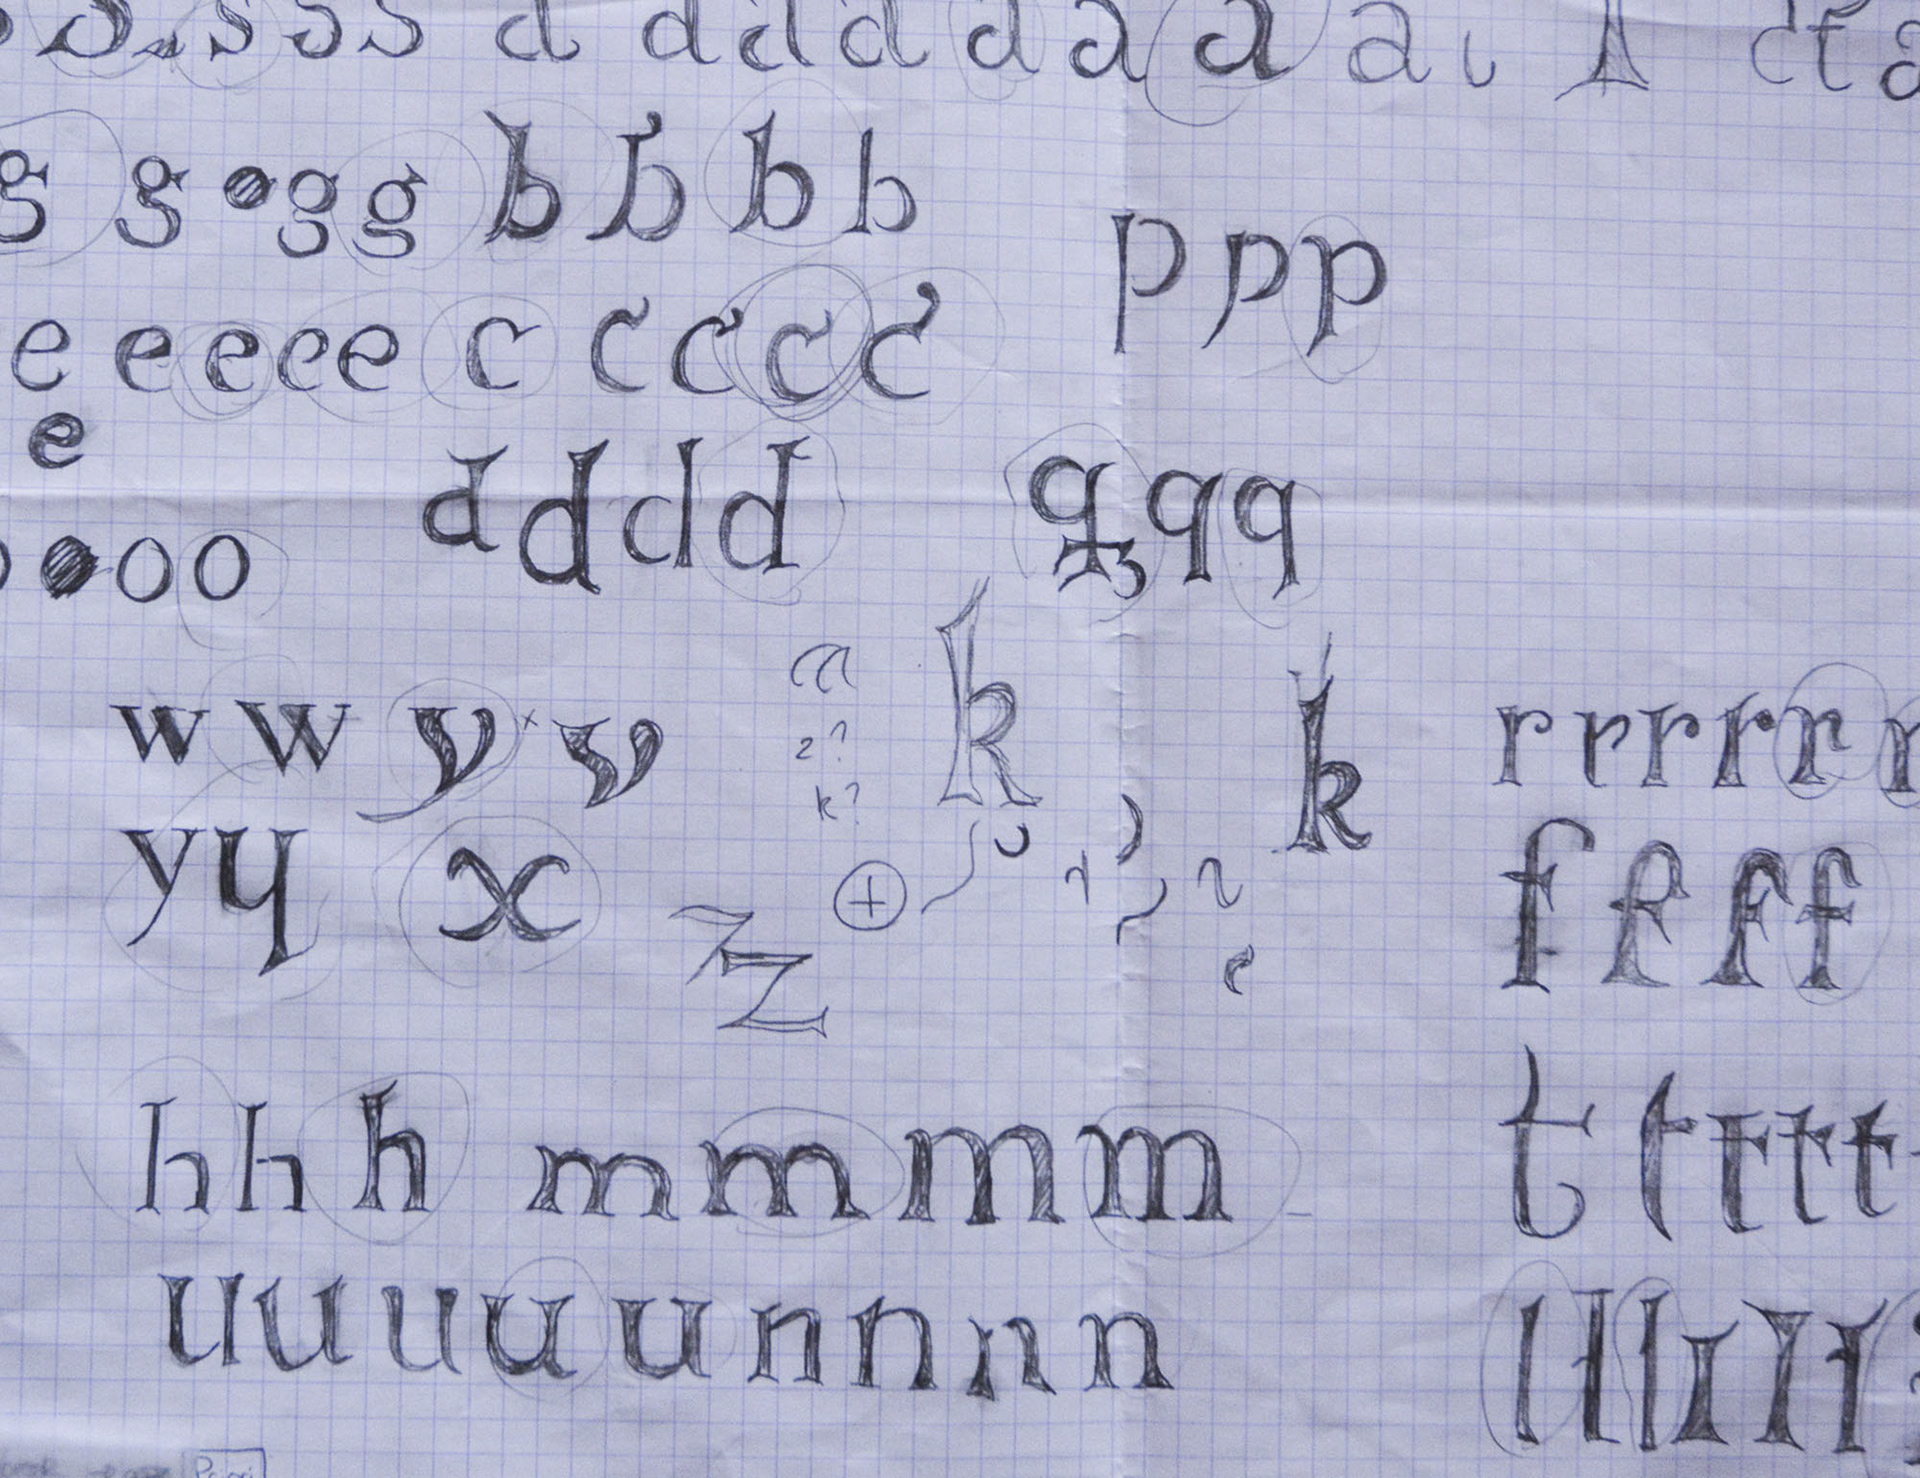 s s s s a a a a a a a a a
g g g g b b b b
p p p
e e e e e c c c c c
e
d d d d q q q
o o
w w y v
2?
k?
k k r r r r r
y y x z z
f f f f
h h h m m m m
t t t t t
u u u u u n n n n
l l l